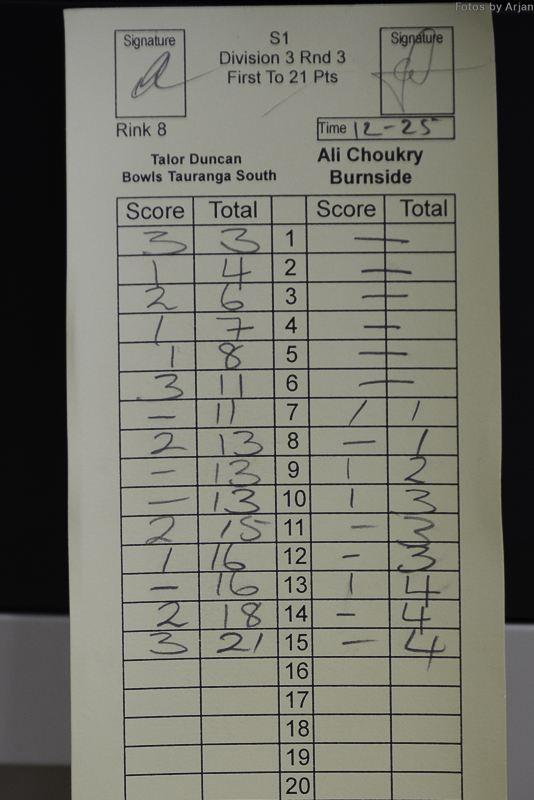 Fotos by Arjan
Signature S1 Signature
Division 3 Rnd 3
First To 21 Pts
Rink 8 Time 12-25
Talor Duncan Ali Choukry
Bowls Tauranga South Burnside
Score Total Score Total
3 3 1 —
1 4 2 —
2 6 3 —
1 7 4 —
1 8 5 —
3 11 6 —
— 11 7 1 1
2 13 8 — 1
— 13 9 1 2
— 13 10 1 3
2 15 11 — 3
1 16 12 — 3
— 16 13 1 4
2 18 14 — 4
3 21 15 — 4
16
17
18
19
20